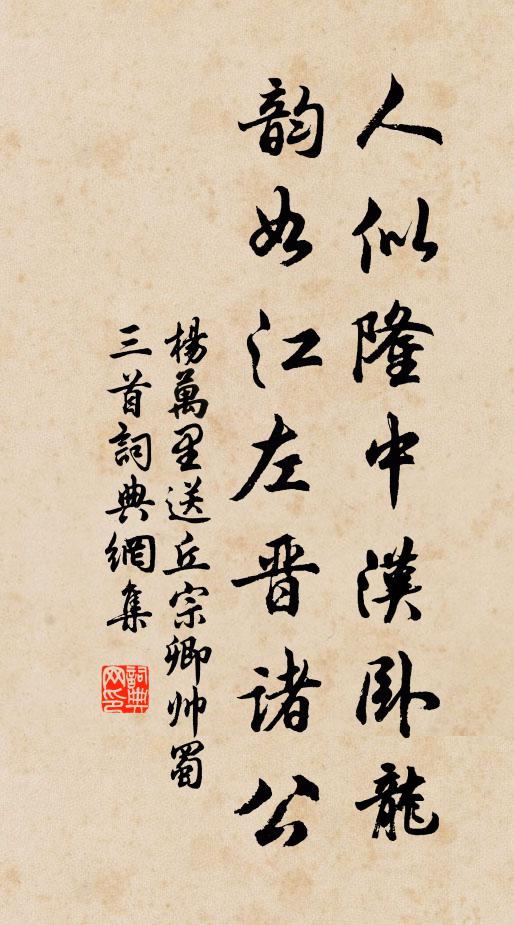 人似隆中漢卧龍
韵如江左晋諸公
楊萬里送丘宗卿帅蜀
三首詞典網集
詞典
网印